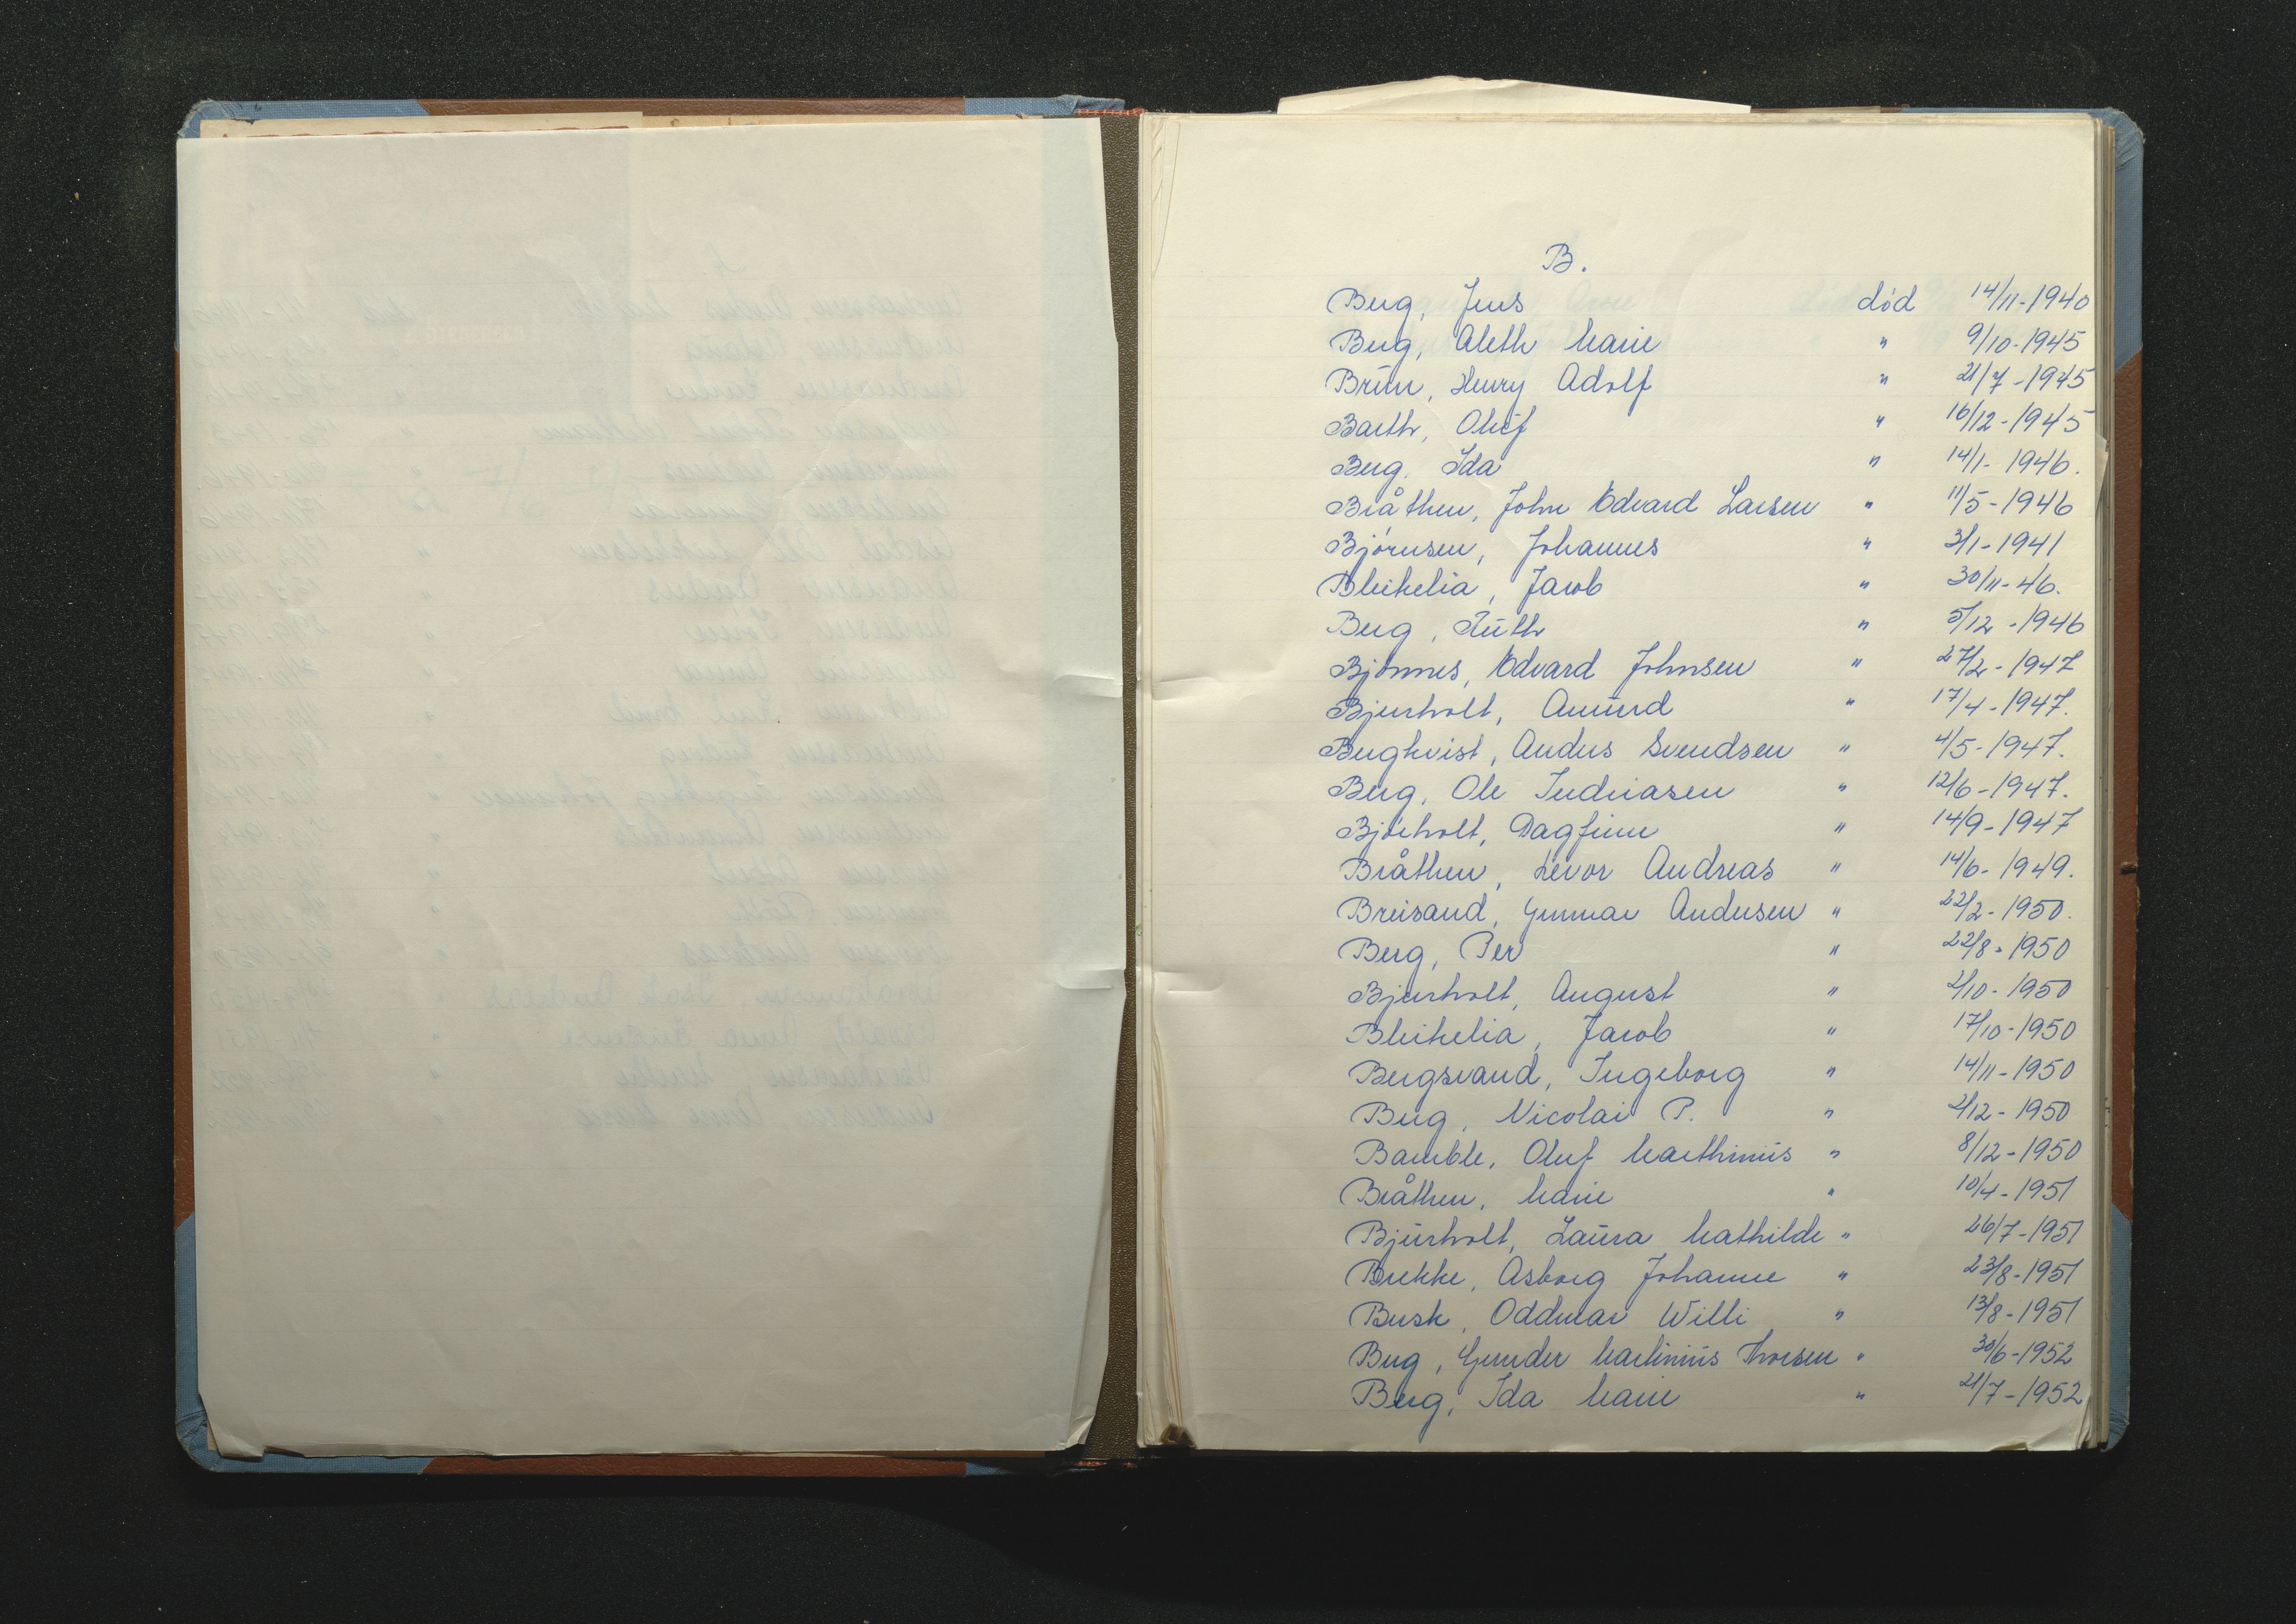 B.
Berg, Jens død 14/11-1940
Berg, Aleth Marie " 9/10-1945
Brun, Henry Adolf " 21/7-1945
Barth, Oluf " 16/12-1945
Berg, Ida " 14/1-1946.
Bråthen, John Edvard Larsen " 11/5-1946
Bjørnsen, Johannes " 3/1-1941
Bleikelia, Jacob " 30/11-46.
Berg, Ruth " 5/12-1946
Bjønnes, Edvard Johnsen " 27/2-1947
Bjerholt, Amund " 17/4-1947.
Berghvist, Anders Svendsen " 4/5-1947.
Berg, Ole Indriasen " 12/6-1947.
Bjørholt, Dagfinn " 14/9-1947
Bråthen, Levor Andreas " 14/6-1949.
Breisand, Gunnar Andersen " 22/2-1950.
Berg, Per " 22/8-1950
Bjerholt, August " 2/10-1950
Bleikelia, Jacob " 17/10-1950
Bergsvand, Ingeborg " 14/11-1950
Berg, Nicolai P. " 2/12-1950
Bamble, Oluf Marthinius " 8/12-1950
Bråthen, Marie " 10/4-1951
Bjurholt, Laura Mathilde " 26/7-1951
Brekke, Asborg Johanne " 23/8-1951
Busk, Oddmar Willi " 13/8-1951
Berg, Gunder Martinius Thorsen " 30/6-1952
Berg, Ida Marie " 21/7-1952